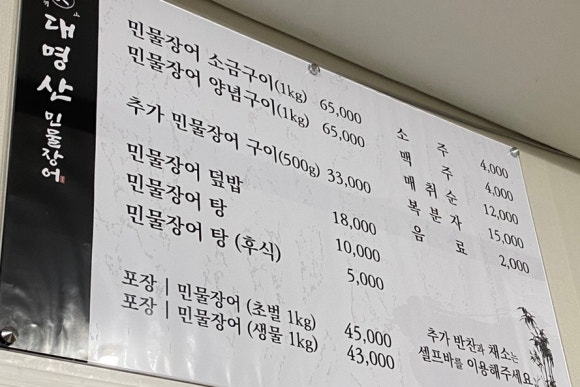 대명산
민물장어
민물장어 소금구이(1kg) 65,000
민물장어 양념구이(1kg) 65,000
추가 민물장어 구이(500g) 33,000
민물장어 덮밥 18,000
민물장어 탕 10,000
민물장어 탕 (후식) 5,000
포장 | 민물장어 (초벌 1kg) 45,000
포장 | 민물장어 (생물 1kg) 43,000
소 주 4,000
맥 주 4,000
매 취 순 12,000
복 분 자 15,000
음 료 2,000
추가 반찬과 채소는
셀프바를 이용해주세요.